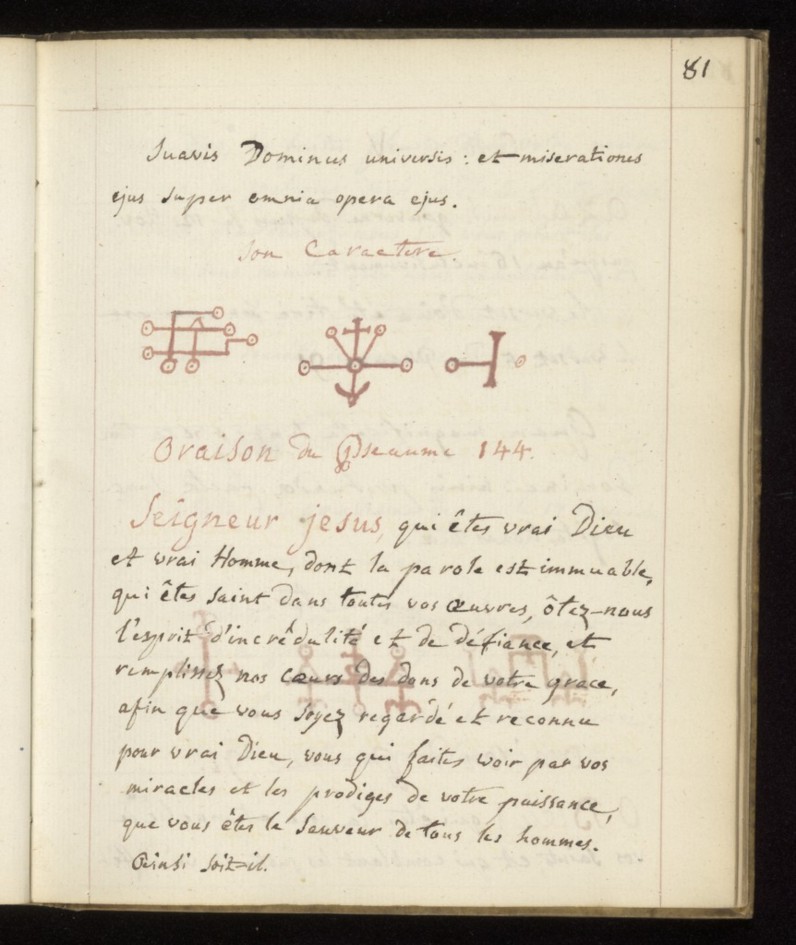 81
Suavis Dominus universis : et miserationes
ejus super omnia opera ejus.
Son Caractere.
Oraison du Pseaume 144.
Seigneur jesus, qui êtes vrai Dieu
et vrai Homme, dont la parole est immuable,
qui êtes saint dans toutes vos œuvres, ôtez-nous
l'esprit d'incrédulité et de défiance, et
remplissez nos cœurs des dons de votre grace,
afin que vous soyez regardé et reconnu
pour vrai Dieu, vous qui faites voir par vos
miracles et les prodiges de votre puissance,
que vous êtes le Sauveur de tous les hommes.
Ainsi soit-il.